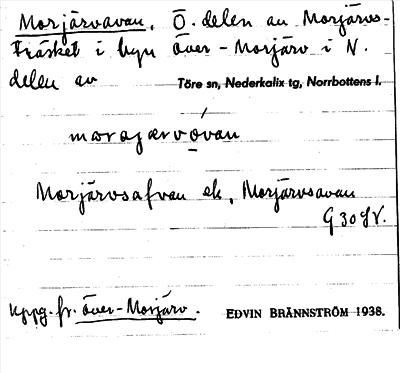 Morjärvavan, Ö. delen av Morjärvs-
träsket i byn Över-Morjärv i N.
delen av Töre sn, Nederkalix tg, Norrbottens l.
morajærvovan
Morjärvsafvan ek, Morjärvsavan
G 30 SV.
Uppg. fr. Över-Morjärv. EDVIN BRÄNNSTRÖM 1938.